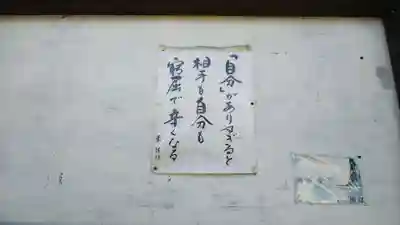 「自分」がありすぎると
相手も自分も
窮屈で辛くなる